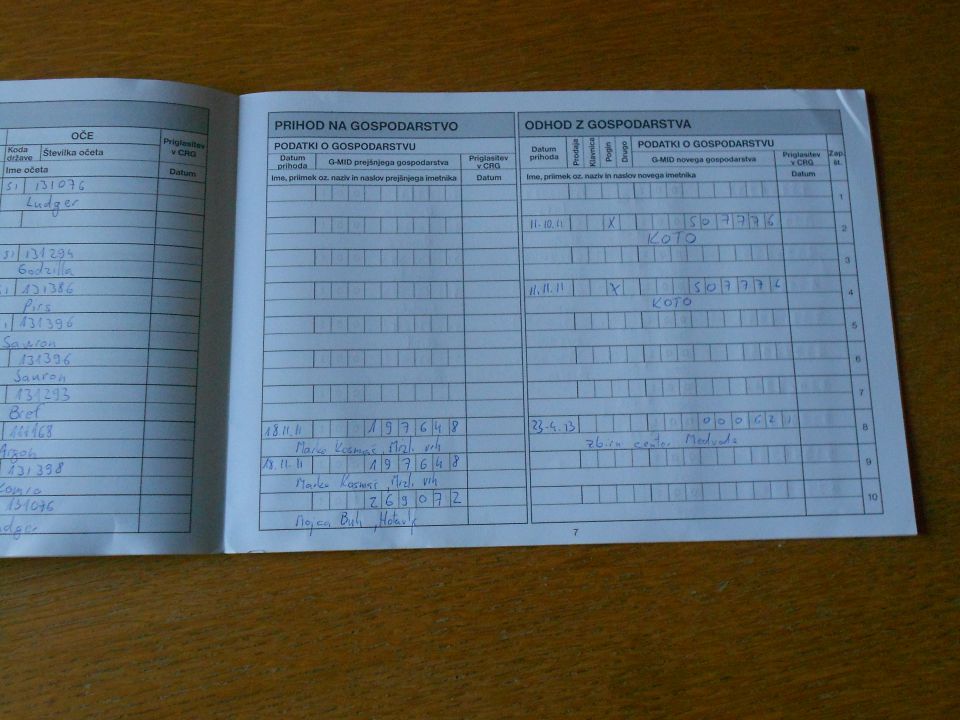 OČE
Priglasitev
v CRG
Koda
države
Številka očeta
Ime očeta
Datum
SI 131076
Ludger
SI 131294
Godzilla
131386
Pirs
131396
Sauron
131396
Sauron
131293
Bref
131398
131076
PRIHOD NA GOSPODARSTVO
PODATKI O GOSPODARSTVU
Datum
prihoda
G-MID prejšnjega gospodarstva
Priglasitev
v CRG
Ime, priimek oz. naziv in naslov prejšnjega imetnika
Datum
18.11.11 197648
Marko Kosmač, Mrzl. vrh
18.11.11 197648
Marko Kosmač, Mrzl. vrh
269072
Mojca Buh,
ODHOD Z GOSPODARSTVA
Datum
prihoda
Prodaja
Klavnica
Pogin
Drugo
PODATKI O GOSPODARSTVU
G-MID novega gospodarstva
Priglasitev
v CRG
Zap.
št.
Ime, priimek oz. naziv in naslov novega imetnika
Datum
1
11.10.11 X 507776 2
KOTO
3
11.11.11 X 507776 4
KOTO
5
6
7
23.4.13 000621 8
zbirn center Medvode
9
10
7